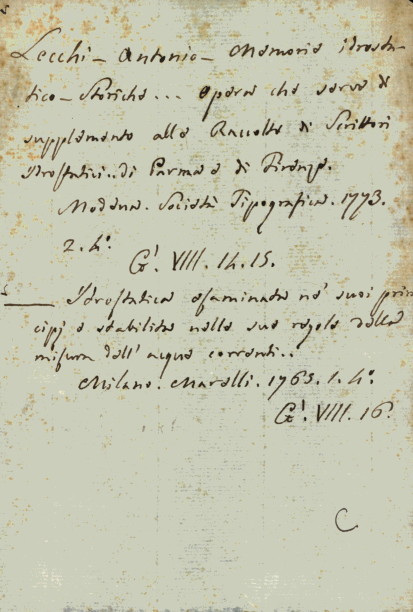 Lecchi - Antonio - Memorie idrosta-
tico-Storiche... Opera che serve di
supplemento alla Raccolta di Scrittori
Idrostatici.. di Parma e di Firenze.
Modena. Società Tipografica. 1773.
2. 4°.
G! VIII. 14. 15.
___ Idrostatica esaminata ne' suoi prin
cipj e stabilita nelle sue regole della
misura dell' acque correnti..
Milano. Marelli. 1765. 1. 4°.
G! VIII. 16.
C